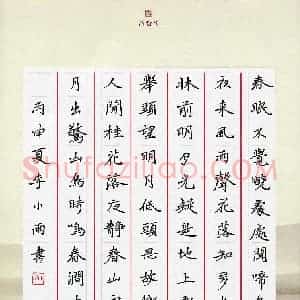 春眠不覺曉處處聞啼
夜來風雨聲花落知多
牀前明月光疑是地上
舉頭望明月低頭思故
人閒桂花落夜靜春山
月出驚山鳥時鳴春澗
丙申夏季小雨書
Shufaziliao.COM